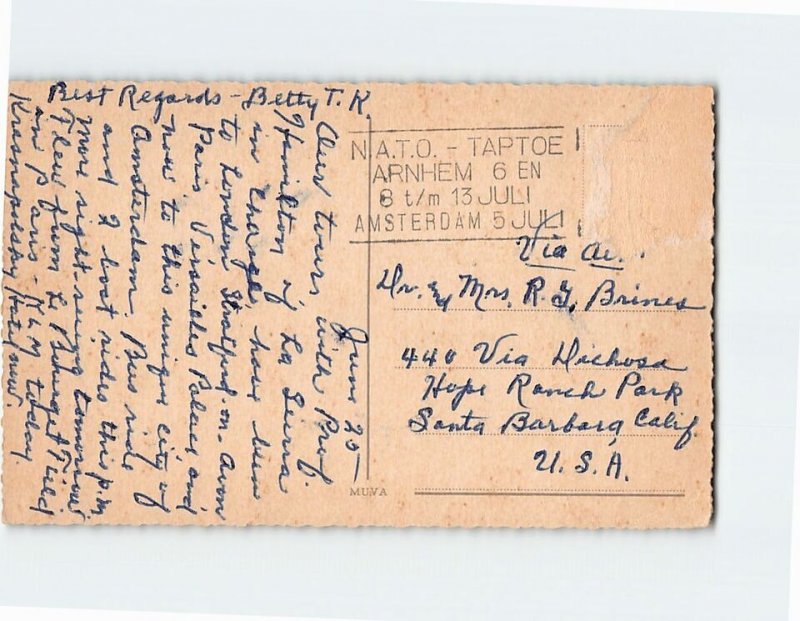 June 25 —
Our tours with Prof.
Hamilton of La Sierra
in charge have been
to London Stratford-on-Avon
Paris Versailles Palace and
now to this unique city of
Amsterdam. Bus ride
and 2 boat rides this p.m.
More sight-seeing tomorrow
Flew from Le Bourget Field
in Paris - KLM today.
Krasnapolsky Hotel now.
Best Regards - Betty T. K.
N.A.T.O. - TAPTOE
ARNHEM 6 EN
8 t/m 13 JULI
AMSTERDAM 5 JULI
Via Air
Dr. and Mrs. R. G. Brines
440 Via Dichosa
Hope Ranch Park
Santa Barbara Calif.
U. S. A.
MUVA